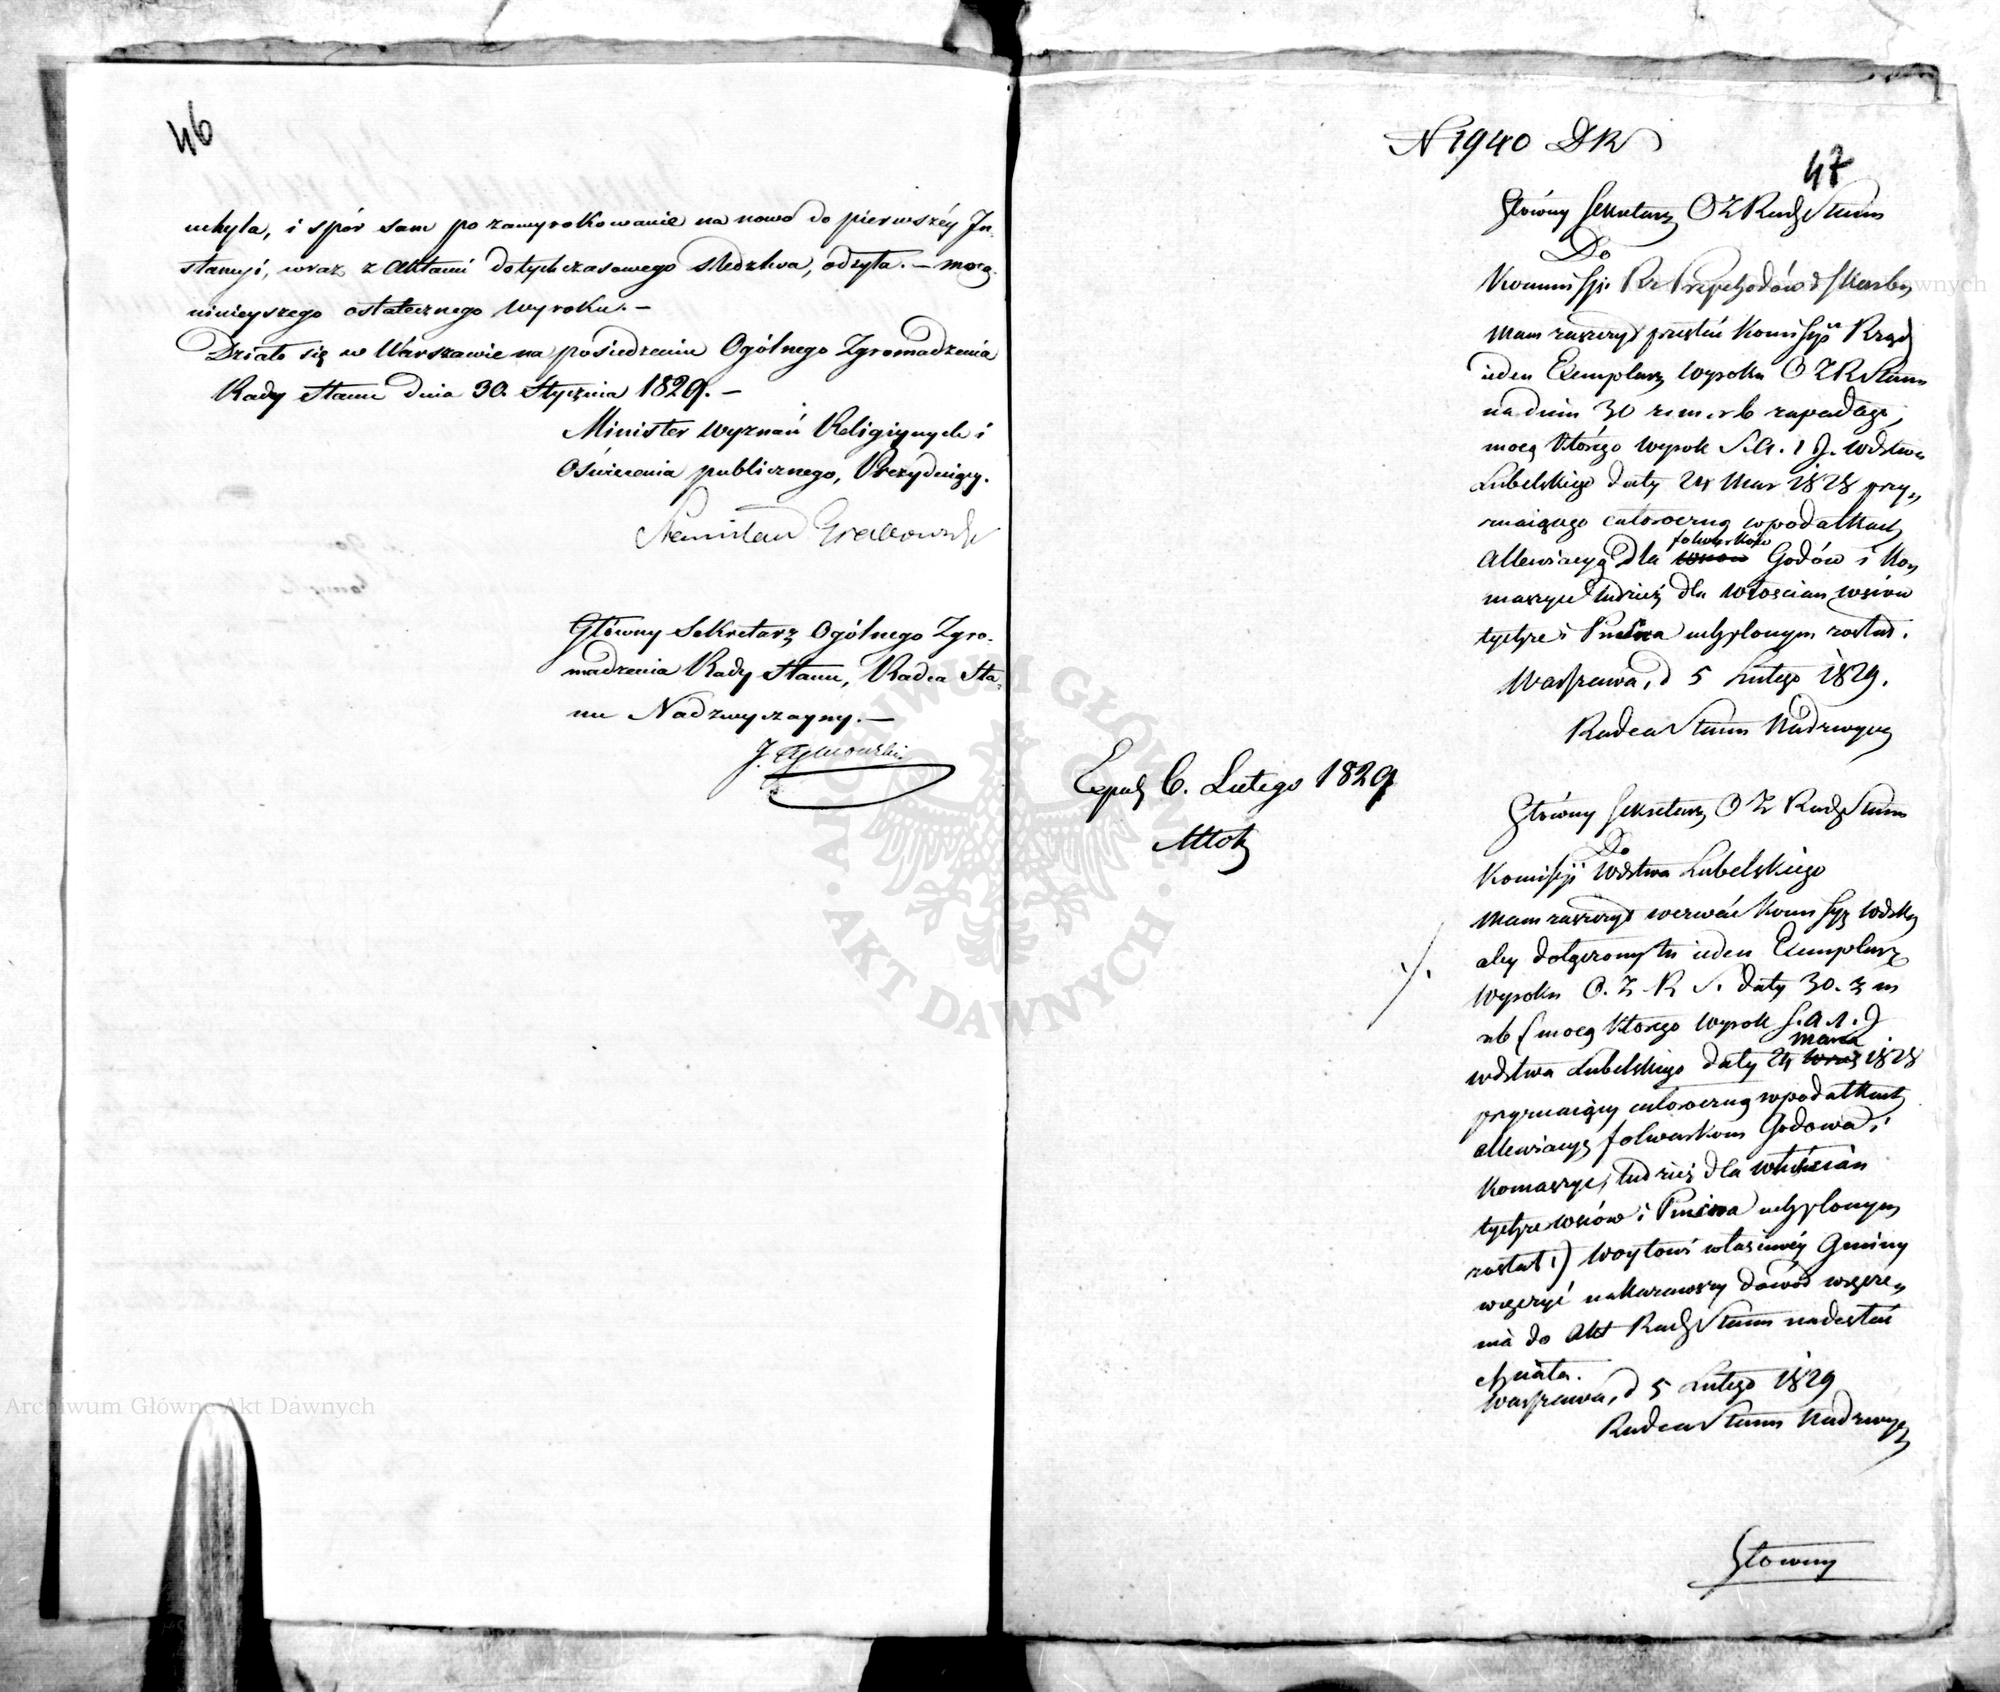 46
uchyla, i spór sam po zawyrokowanie na nowo do pierwszéy In-
stancyi, wraz z Aktami dotychczasowego śledztwa, odsyła. — mocą
ninieyszego ostatecznego Wyroku. —
Działo się w Warszawie na posiedzeniu Ogólnego Zgromadzenia
Rady Stanu dnia 30. Stycznia 1829. —
Minister Wyznań Religiynych i
Oświecenia publicznego, Prezyduiący.
Stanisław Grabowski
Główny Sekretarz Ogólnego Zgro-
madzenia Rady Stanu, Radca Sta-
nu Nadzwyczayny. —
J. Tymowski
N 1940 DR
47
Główny Sekretarz O Z Rady Stanu
Do
Kommissyi Rz Przychodów i Skarbu
Mam zaszczyt przesłać Komissyi Rząd
ieden Exemplarz Wyroku O Z R Stanu
na dniu 30 z. m. r b zapadłego,
mocą którego wyrok S. A. I J. Wdztwa
Lubelskiego daty 24 Mar 1828 przy-
znaiącego całoroczną w podatkach
Allewiacyą dla folwarków Godów i Ko-
maszyce tudzież dla włościan wsiów
tychże i Puszna uchylonym został.
Warszawa, d 5 Lutego 1829.
Radca Stanu Nadzwycz
Exped 6. Lutego 1829
Główny Sekretarz O Z Rady Stanu
Do
Komissyi Wdztwa Lubelskiego
Mam zaszczyt wezwać Komissyę Wdzką
aby dołączony tu ieden Exemplarz
Wyroku O. Z. R S. daty 30. z m
r b (mocą którego wyrok S. A I. J
Wdztwa Lubelskiego daty 24 Marca 1828
przyznaiący całoroczną w podatkach
allewiacyę folwarkom Godowa i
Komaszyce, tudzież dla włościan
tychże wsiów i Puszna uchylonym
został) Woytowi właściwéy Gminy
wręczyć nakazawszy dowód wręcze-
nia do Akt Rady Stanu nadesłać
chciała.
Warszawa, d 5 Lutego 1829
Radca Stanu Nadzwycz
Archiwum Główne Akt Dawnych
ARCHIWUM GŁÓWNE · AKT DAWNYCH ·